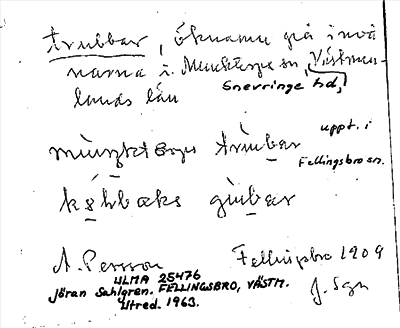 Trubbar, öknamn på invå
narna i Munktorps sn, Västman-
Snevringe hd,
lands län
uppt. i
Fellingsbro sn.
kǫ́lbæks gùbar
A. Persson Fellingsbro 1909
ULMA 25476 J. Sgn
Jöran Sahlgren. FELLINGSBRO, VÄSTM.
Utred. 1963.